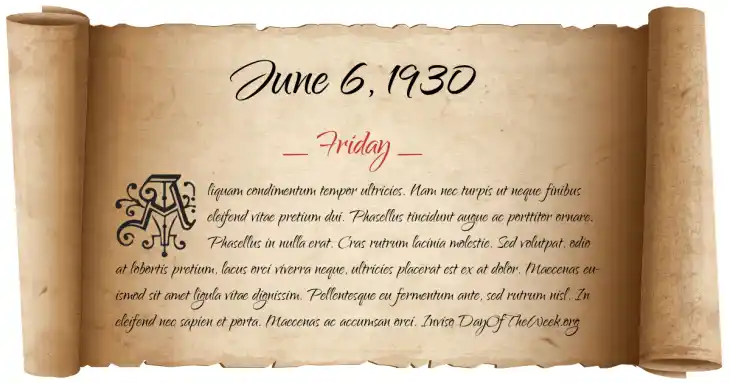 June 6, 1930
_ Friday _
Aliquam condimentum tempor ultricies. Nam nec turpis ut neque finibus
eleifend vitae pretium dui. Phasellus tincidunt augue ac porttitor ornare.
Phasellus in nulla erat. Cras rutrum lacinia molestie. Sed volutpat, odio
at lobortis pretium, lacus orci viverra neque, ultricies placerat est ex at dolor. Maecenas eu-
ismod sit amet ligula vitae dignissim. Pellentesque eu fermentum ante, sed rutrum nisl. In
eleifend nec sapien et porta. Maecenas ac accumsan orci. Inviso DayOfTheWeek.org